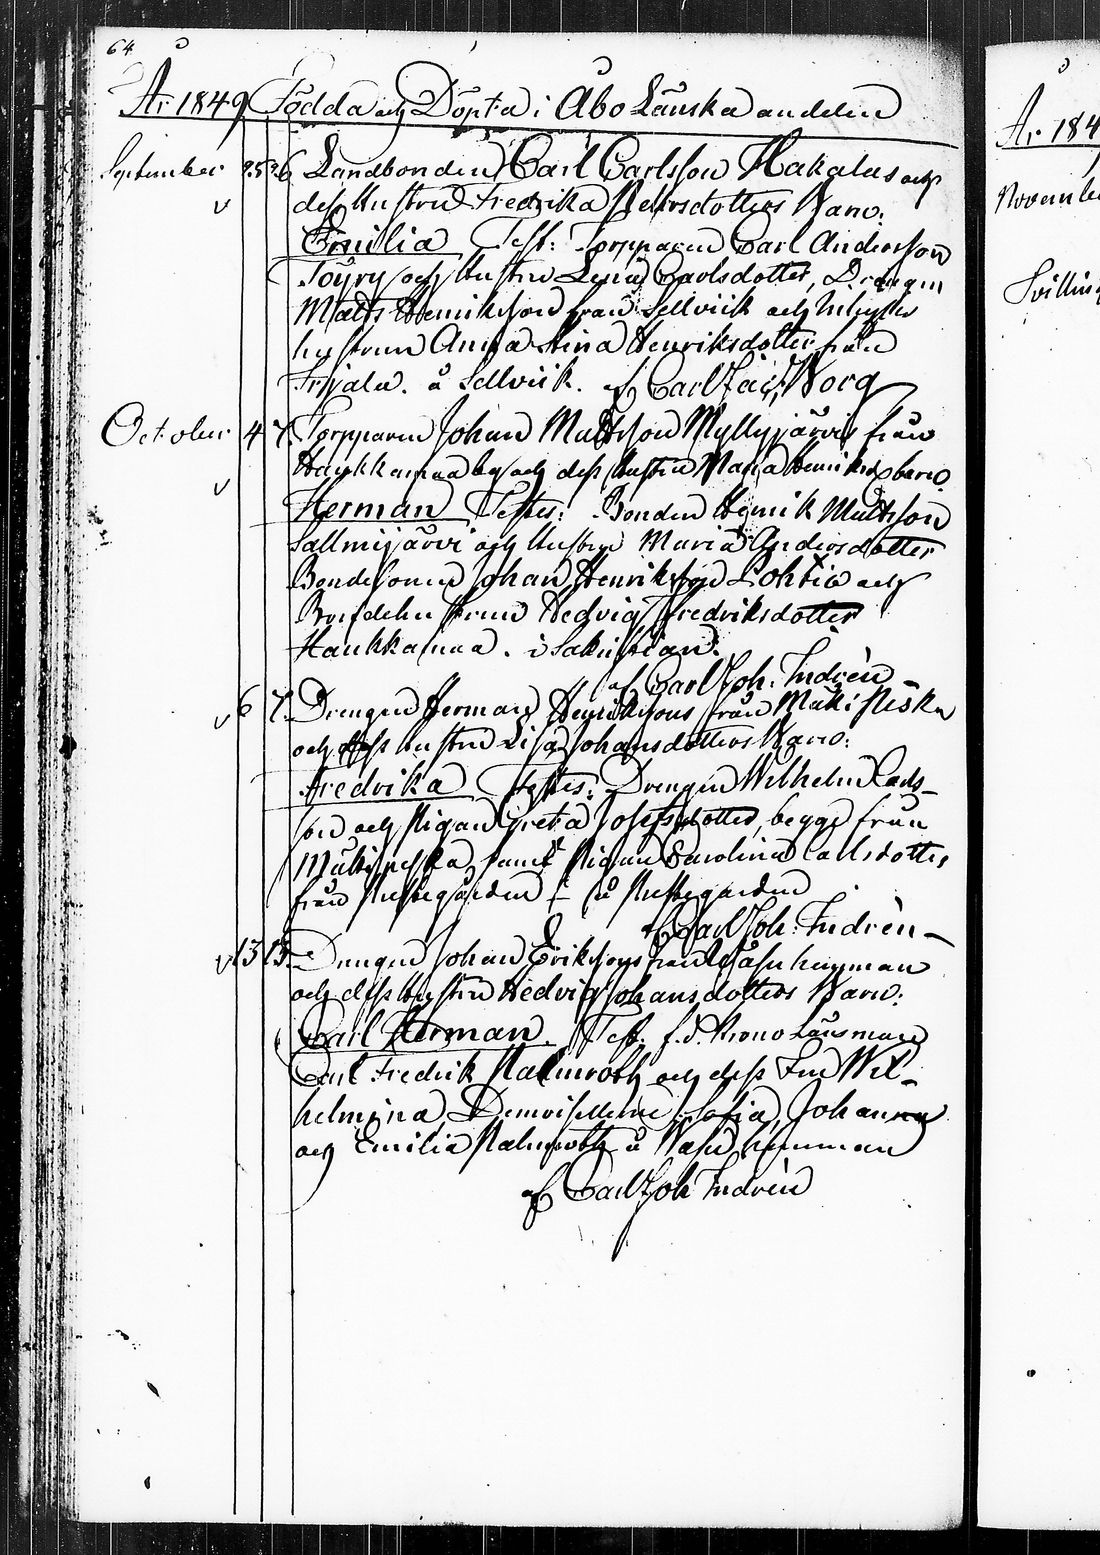 64
År 1849 Födda och Döpta i Åbo Länska andelen
September 25 26 Landbonden Carl Carlsson Hakalas och
dess Hustru Fredrika Petersdotters Barn:
Emilia Test: Torpparen Carl Andersson
Töyry och Hustru Lena Carlsdotter, Drängen
Matts Henriksson från Sellvik och Inhyses
hustrun Anna Stina Henriksdotter från
å Sellvik. af Carl Borg
October 4 7. Torpparen Johan Mattsson Myllyjärvis från
Haukkamaa by och dess Hustru Maria Henriksd barn.
Herman Testes: Bonden Henrik Mattsson
Sallmijärvi och Hustru Maria Andersdotter
Bondesonen Johan Henriksson och
Hedvig Fredriksdotter
Haukkamaa. i Sakristian.
af Carl Joh: Indrén
6 7. Drengen Herman Henrikssons från Mäkipäskä
och dess Hustru Lisa Johansdotters Barn:
Fredrika Testes: Drengen Wilhelm Carls-
son och Pigan Greta Josefsdotter, begge från
samt Pigan Carolina Carlsdotter
från Prestegården å Prestegården
af Carl Joh: Indrén
13 13. Drengen Johan Erikssons från hemman
och dess hustru Hedvig Johansdotters Barn:
Carl Herman. Test. f.d. Krono Länsman
Carl Fredrik Palmroth och dess Fru Wil-
helmina, Demoisellerne Sofia, Johanna
och Emilia Palmroth å hemman
af Carl Joh Indrén
År 184
November
Tvilling